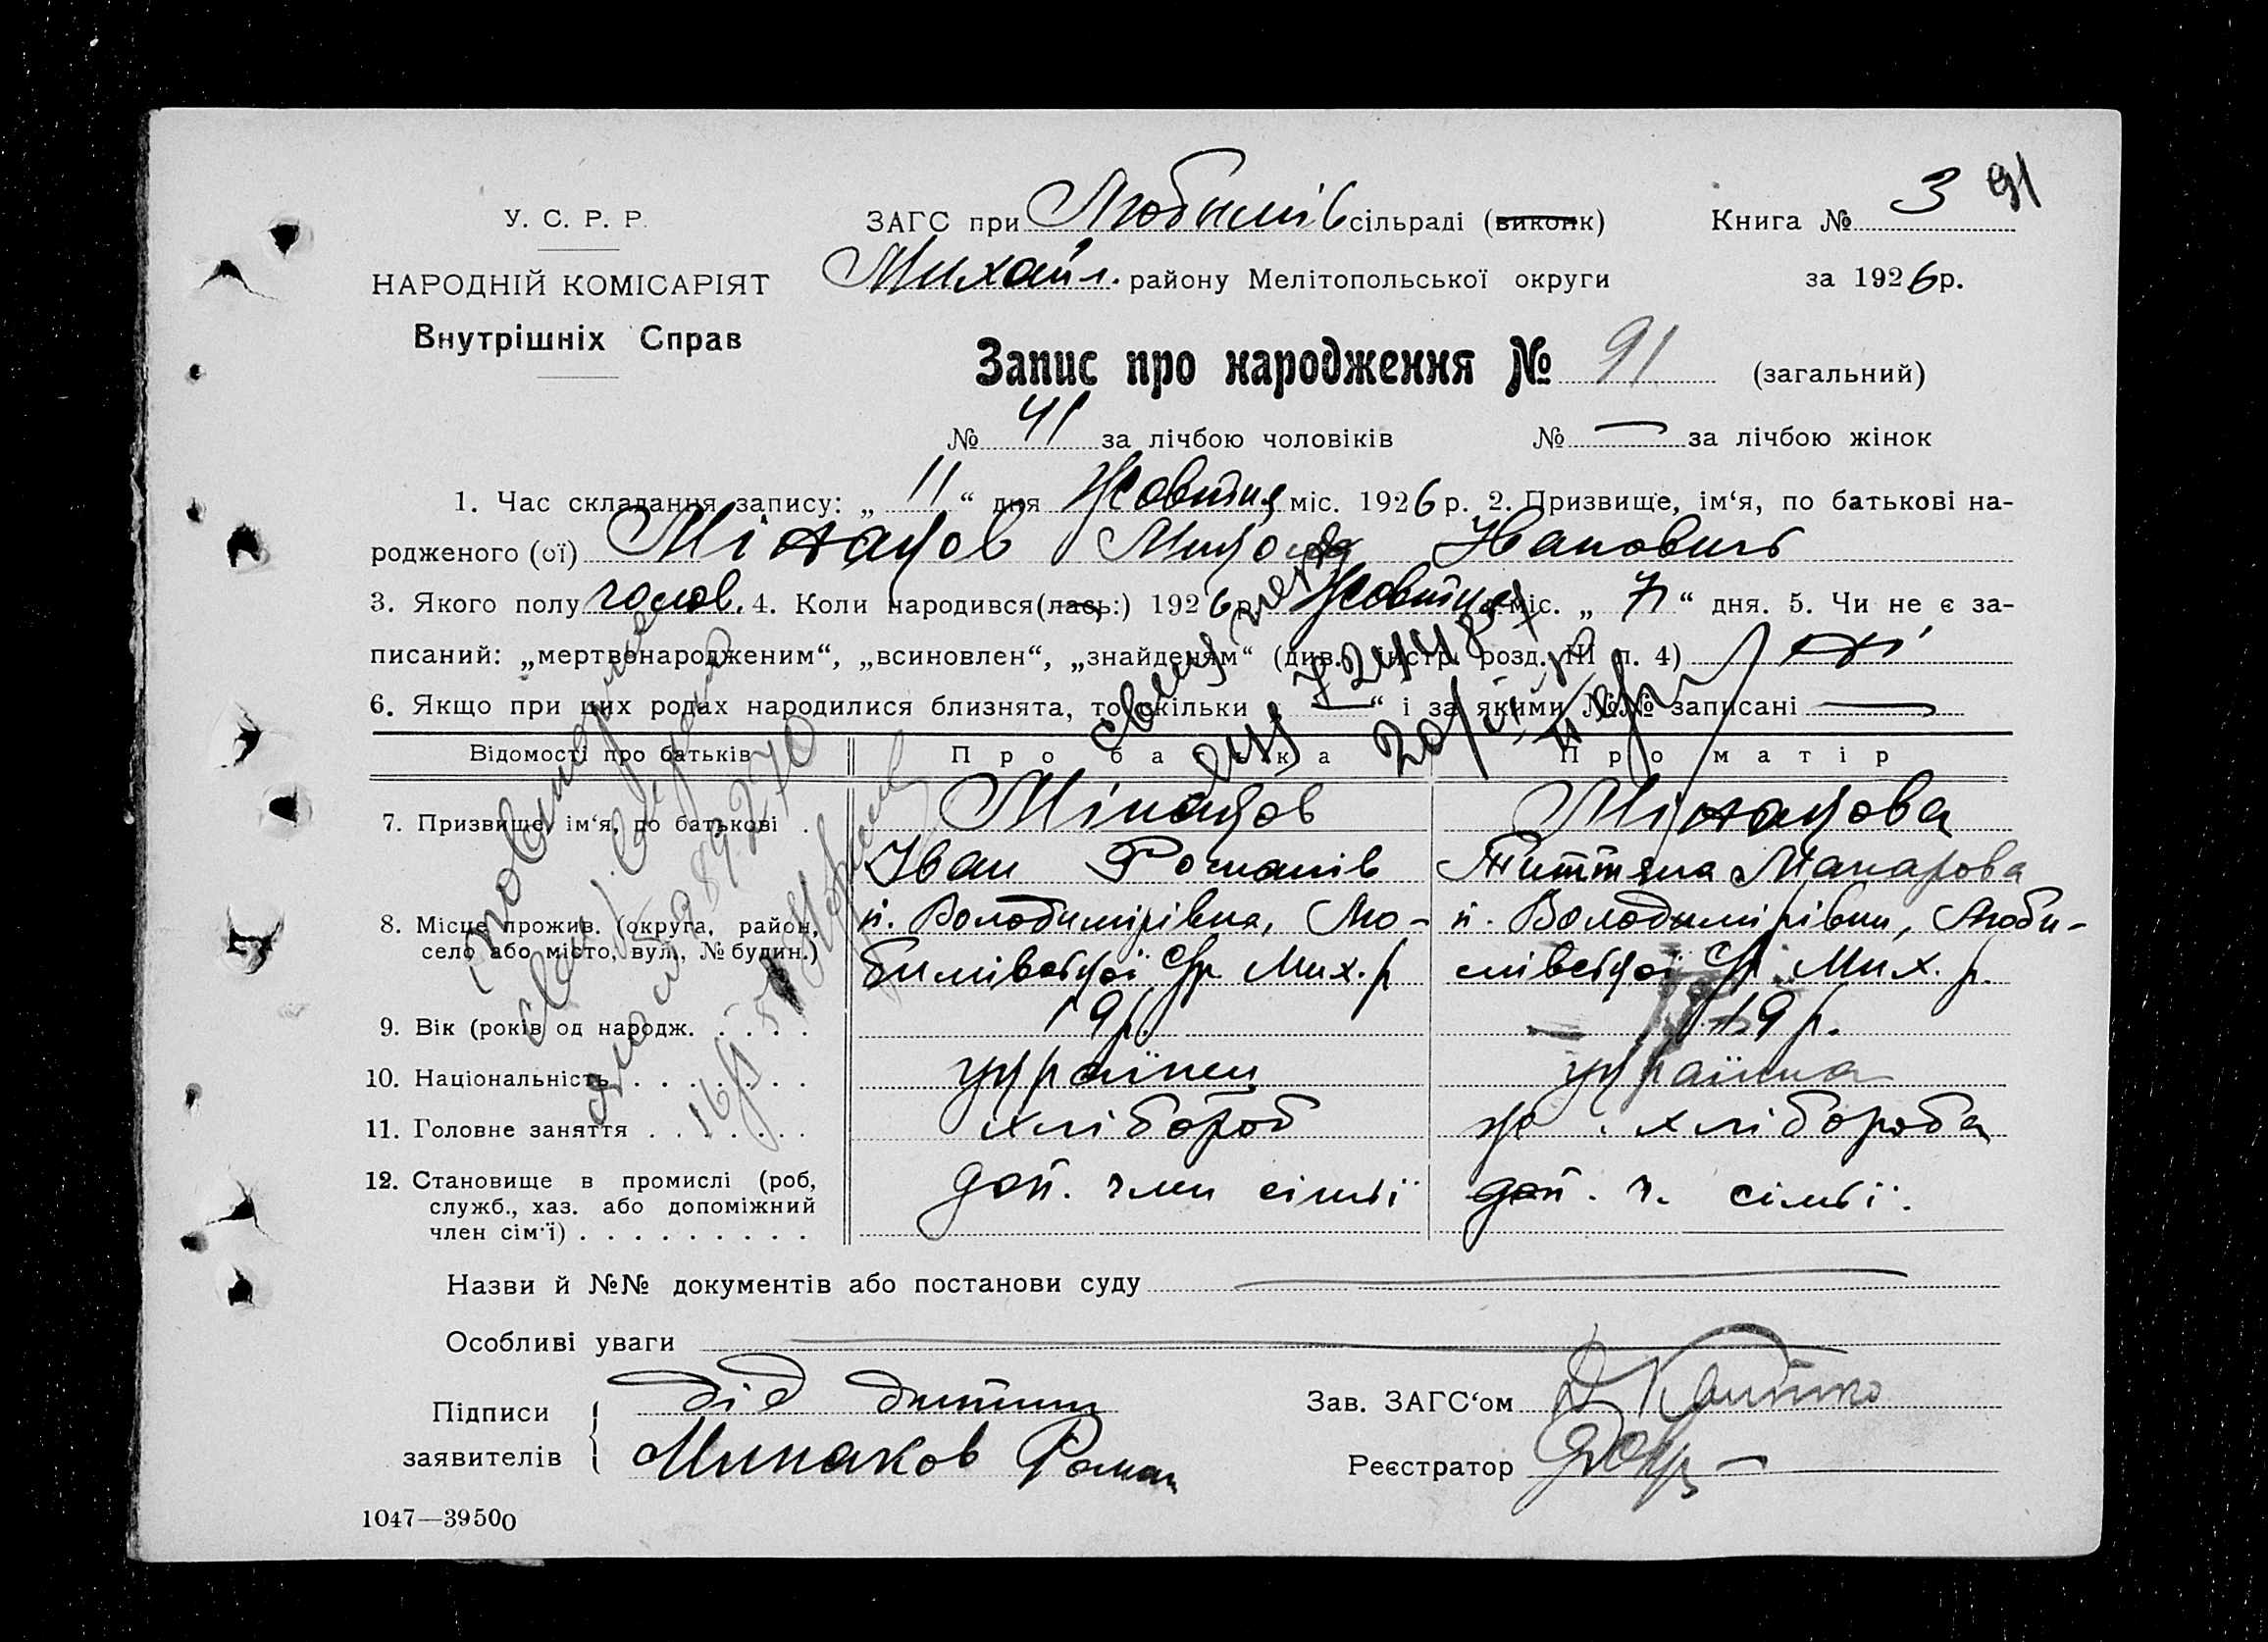 3 91
У. С. Р. Р.
ЗАГС при Любимів сільраді (виконк)
Книга №
НАРОДНІЙ КОМІСАРІЯТ
Михайл. району Мелітопольської округи
за 1926 р.
Внутрішніх Справ
Запис про народження № 91 (загальний)
№ 41 за лічбою чоловіків № — за лічбою жінок
1. Час складання запису: „ 11 “ дня Жовтня міс. 1926 р. 2. Призвище, ім‘я, по батькові на-
родженого (ої) Мінаков Микола Иванович
3. Якого полу чолов. 4. Коли народився (лась:) 1926 р. Жовтня міс. „ 7 “ дня. 5. Чи не є за-
писаний: „мертвонародженим“, „всиновлен“, „знайденям“ (див. інстр. розд. III п. 4) ні
6. Якщо при цих родах народилися близнята, то скільки „ — “ і за якими №№ записані —
Відомості про батьків Про батька Про матір
7. Призвище, ім‘я, по батькові . Мінаков Мінакова
Іван Романів Макарова
8. Місце прожив. (округа, район, п. Володимирівна, Лю- п. Володимирівни, Люби-
село або місто, вул., № будин.) бимівської с/р Мих. р мівської с/р Мих. р.
9. Вік (років од народж. . . . . 19 р. 19 р.
10. Національність . . . . . . . українец українка
11. Головне заняття . . . . . . . хлібороб ж. хлібороба
12. Становище в промислі (роб, доп. член сімьї доп. ч. сімьї.
служб., хаз. або допоміжний
член сім‘ї) . . . . . . . . .
Назви й №№ документів або постанови суду
Особливі уваги
Підписи дід дитини
заявителів Минаков Роман
Зав. ЗАГС‘ом
Реєстратор
1047—39500